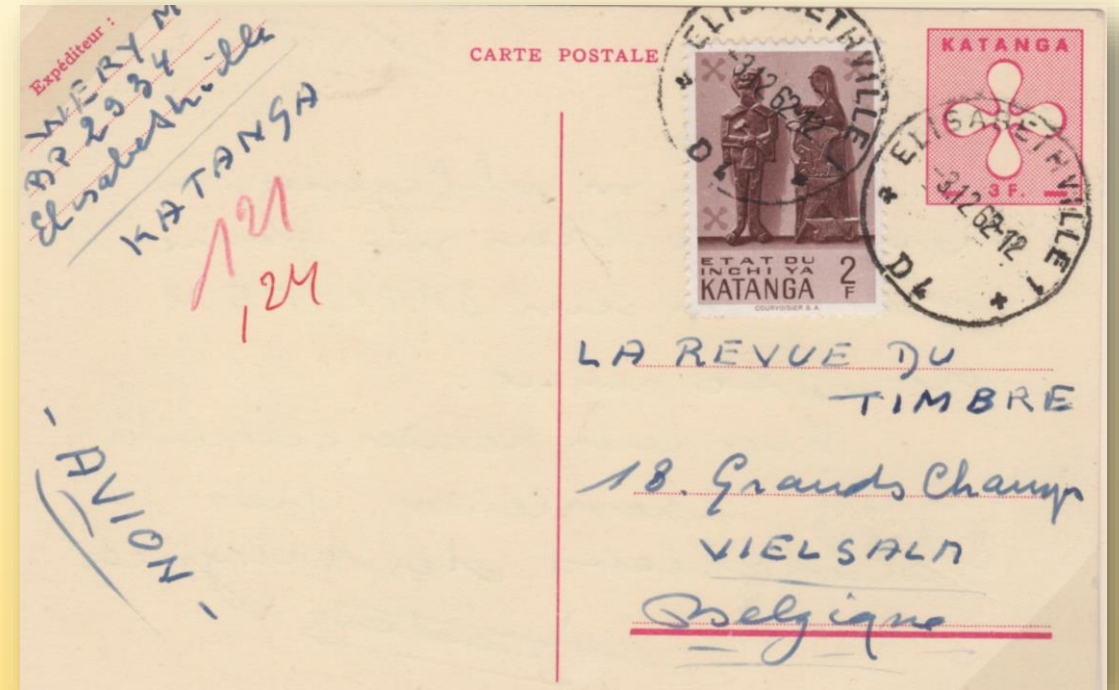 Expéditeur :
WERY M
BP 2934
Elisabethville
KATANGA
121
,24
- AVION -
CARTE POSTALE
* ELISABETHVILLE 1 *
D4
-3.12 62-12
ETAT DU
INCHI YA
KATANGA
2
F
COURVOISIER S.A.
KATANGA
3 F.
* ELISABETHVILLE 1 *
D4
-3.12 62-12
LA REVUE DU
TIMBRE
18. Grands Champs
VIELSALM
Belgique